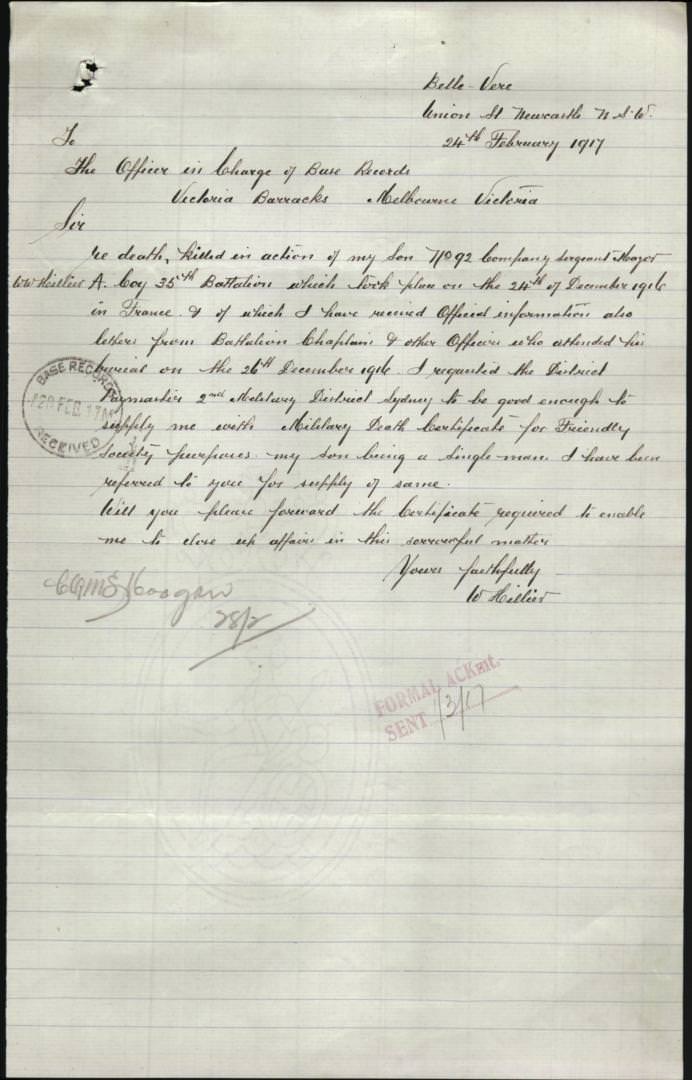 Belle-Vere
Union St Newcastle N.S.W.
24th February 1917
To
The Officer in Charge of Base Records
Victoria Barracks Melbourne Victoria
Sir
re death, killed in action of my Son No 92 Company Sergeant Mayor
WW Hillier A. Coy 35th Battalion which took place on the 24th of December 1916
in France. & of which I have received Official information also
letters from Battalion Chaplain & other Officers who attended his
burial on the 26th December 1916. I requested the District
Paymaster 2nd Military District Sydney to be good enough to
supply me with Military Death Certificate for Friendly
Society purposes. my son being a single man. I have been
referred to you for supply of same.
Will you please forward the Certificate required to enable
me to close up affairs in this sorrowful matter
Yours faithfully
W Hillier
BASE RECORDS
28 FEB. 17
RECEIVED
28/2
FORMAL ACKmt.
SENT 1/3/17